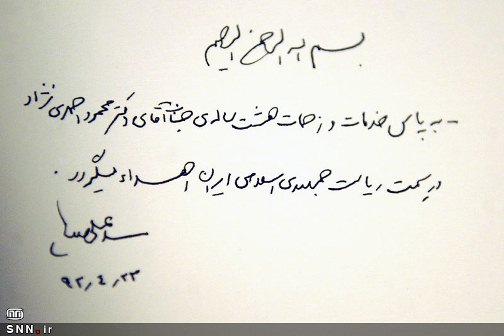 بسم الله الرحمن الرحیم
- به پاس خدمات و زحمات هشت ساله‌ی جناب آقای دکتر محمود احمدی نژاد
در سمت ریاست جمهوری اسلامی ایران اهداء میگردد.
سید علی
۹۲٫۴٫۲۳
SNN.ir